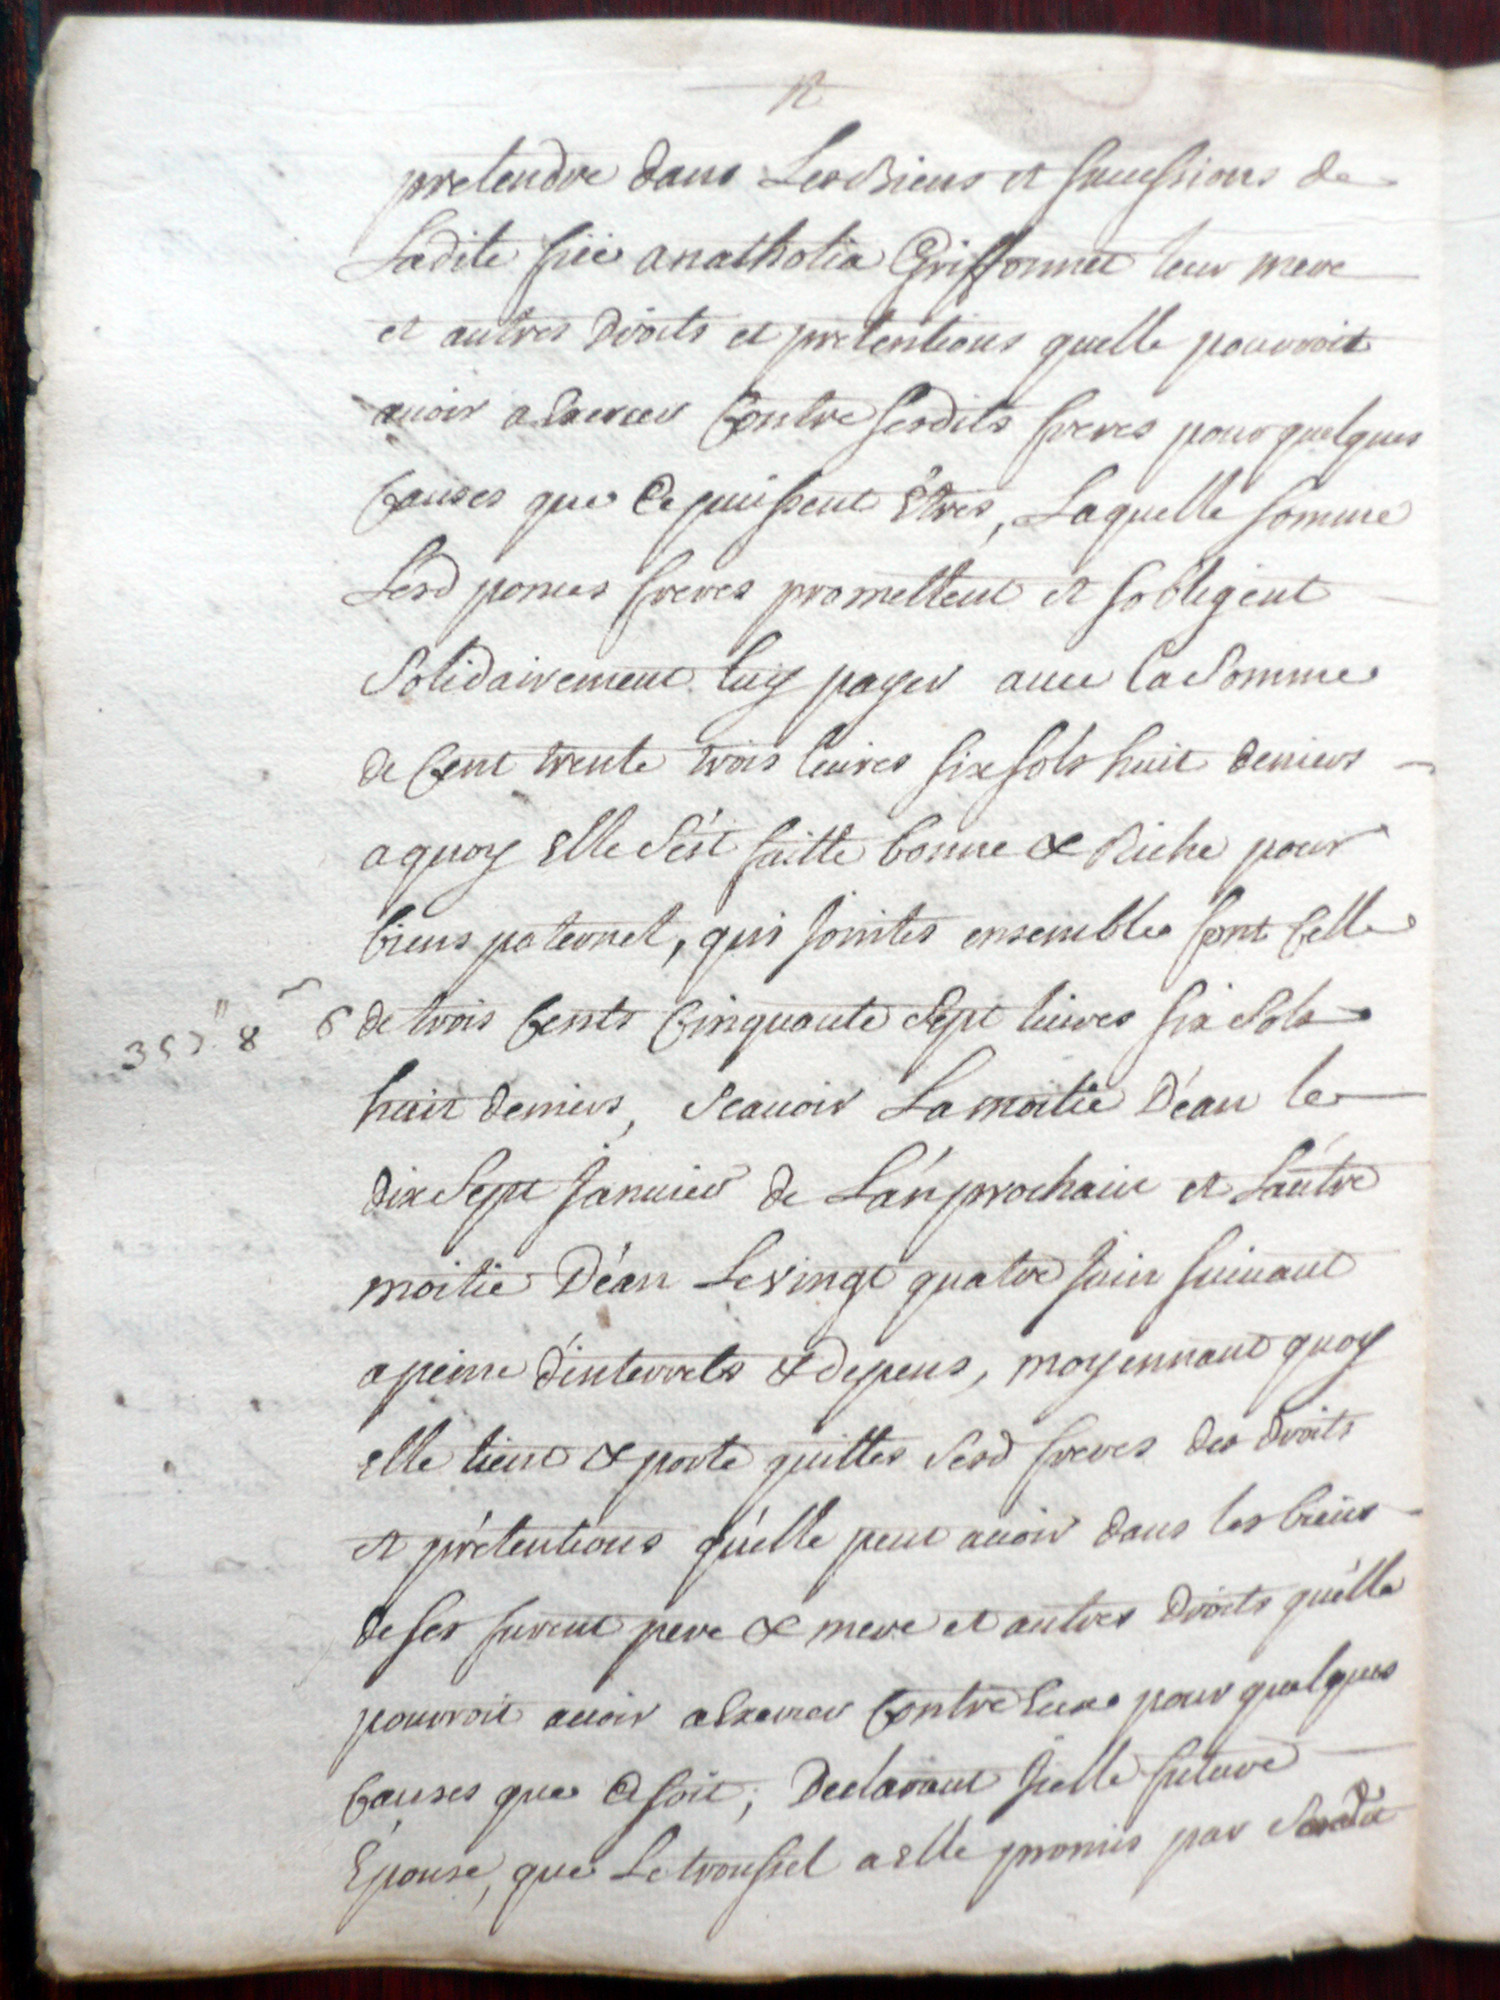 pretendre dans Les Biens et successions de
Ladite füe anatholia Griffonnet leur mere
et autres Droits et pretentions quelle pouvroit
avoir a Exercer Contre sesdits freres pour quelques
Causes que Ce puissent Etres, Laquelle somme
Lesd freres promettent et sobligent
Solidairement luy payer avec la Somme
de Cent trente trois livres six sols huit deniers
aquoy Elle S'ést faitte bonne & Riche pour
biens paternel, qui Jointes ensemble font Celle
357" 8 6 de trois Cents Cinquante Sept livres six Sols
huit deniers, Scavoir La moitié D'éan le
dix Sept Janvier de L'an prochain et L'autre
moitie D'éan Le Vingt quatre Juin suivant
apeine d'interrets & depens, moyennant quoy
elle tient & porte quittes Sesd freres des droits
et prétentions qu'elle peut avoir dans les biens
de ses furent pere & mere et autres Droits qu'élle
pouvroit avoir a Exercer Contre Eux pour quelques
Causes que Ce soit; Declarant Jcelle future
Épouse, que Le troussel a Elle promis par